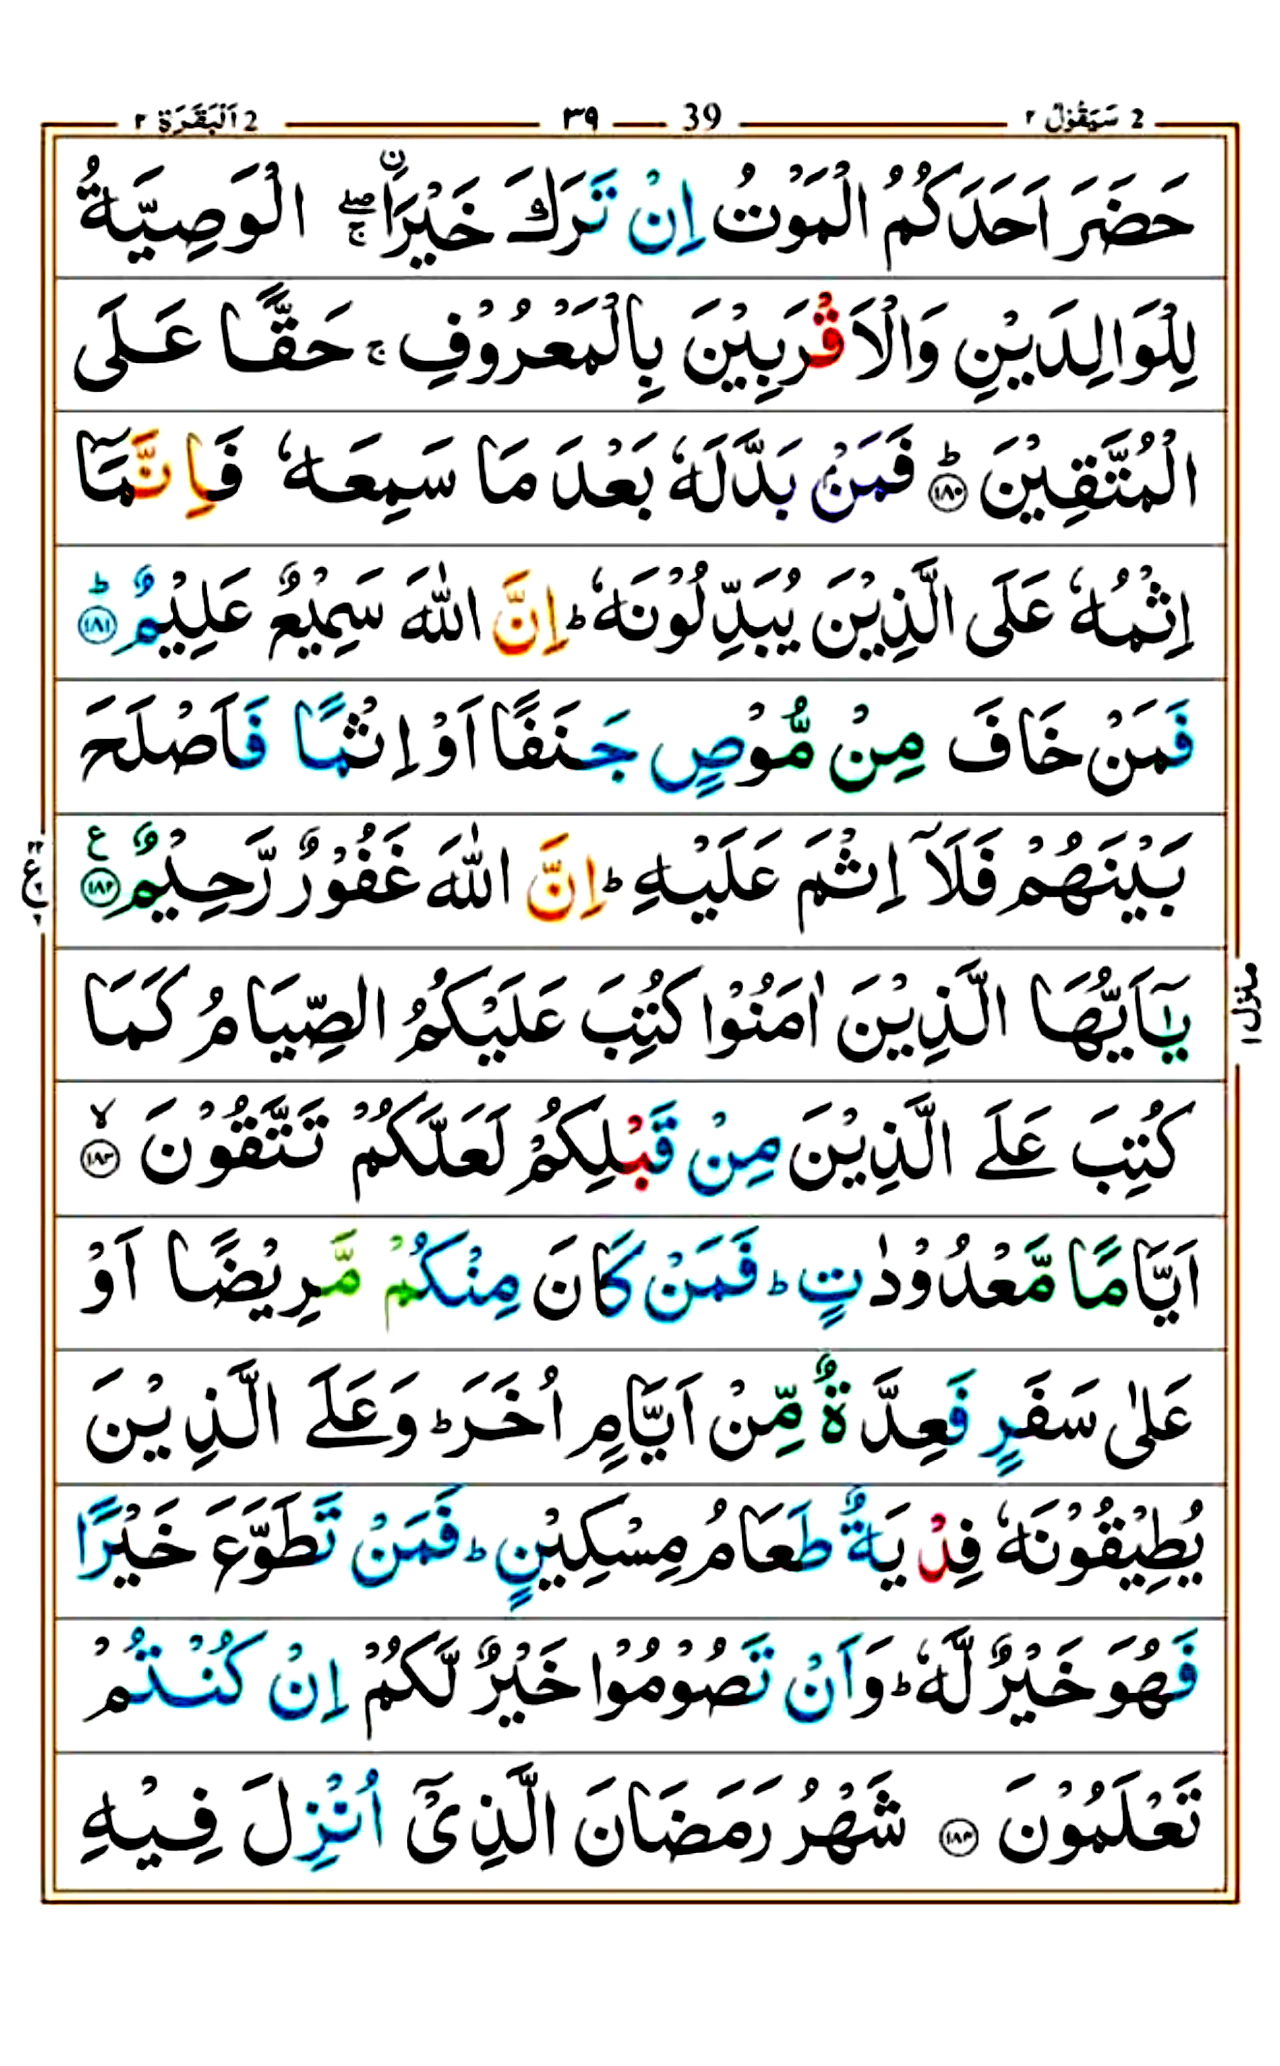 2 اَلْبَقَرَة ٢ ٣٩ 39 2 سَيَقُوْلُ ٢
حَضَرَ اَحَدَكُمُ الْمَوْتُ اِنْ تَرَكَ خَيْرَاۨ ۖۚ الْوَصِيَّةُ
لِلْوَالِدَيْنِ وَالْاَقْرَبِيْنَ بِالْمَعْرُوْفِ ۚ حَقًّا عَلَى
الْمُتَّقِيْنَ ؕ ﴿١٨٠﴾ فَمَنْۢ بَدَّلَهٗ بَعْدَ مَا سَمِعَهٗ فَاِنَّمَاۤ
اِثْمُهٗ عَلَى الَّذِيْنَ يُبَدِّلُوْنَهٗ ؕ اِنَّ اللّٰهَ سَمِيْعٌ عَلِيْمٌ ؕ ﴿١٨١﴾
فَمَنْ خَافَ مِنْ مُّوْصٍ جَنَفًا اَوْ اِثْمًا فَاَصْلَحَ
بَيْنَهُمْ فَلَاۤ اِثْمَ عَلَيْهِ ؕ اِنَّ اللّٰهَ غَفُوْرٌ رَّحِيْمٌ ع ﴿١٨٢﴾
يٰۤاَيُّهَا الَّذِيْنَ اٰمَنُوْا كُتِبَ عَلَيْكُمُ الصِّيَامُ كَمَا
كُتِبَ عَلَے الَّذِيْنَ مِنْ قَبْلِكُمْ لَعَلَّكُمْ تَتَّقُوْنَ ۙ ﴿١٨٣﴾
اَيَّامًا مَّعْدُوْدٰتٍ ؕ فَمَنْ كَانَ مِنْكُمْ مَّرِيْضًا اَوْ
عَلٰى سَفَرٍ فَعِدَّةٌ مِّنْ اَيَّامٍ اُخَرَ ؕ وَعَلَے الَّذِيْنَ
يُطِيْقُوْنَهٗ فِدْيَةٌ طَعَامُ مِسْكِيْنٍ ؕ فَمَنْ تَطَوَّعَ خَيْرًا
فَهُوَ خَيْرٌ لَّهٗ ؕ وَاَنْ تَصُوْمُوْا خَيْرٌ لَّكُمْ اِنْ كُنْتُمْ
تَعْلَمُوْنَ ﴿١٨٤﴾ شَهْرُ رَمَضَانَ الَّذِىْۤ اُنْزِلَ فِيْهِ
منزل ١